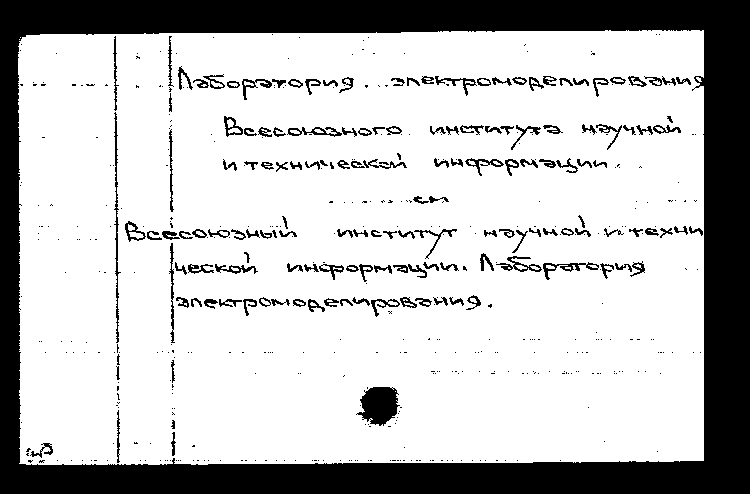 Лаборатория электромоделирования
Всесоюзного института научной
и технической информации
см
Всесоюзный институт научной и техни
ческой информации. Лаборатория
электромоделирования.